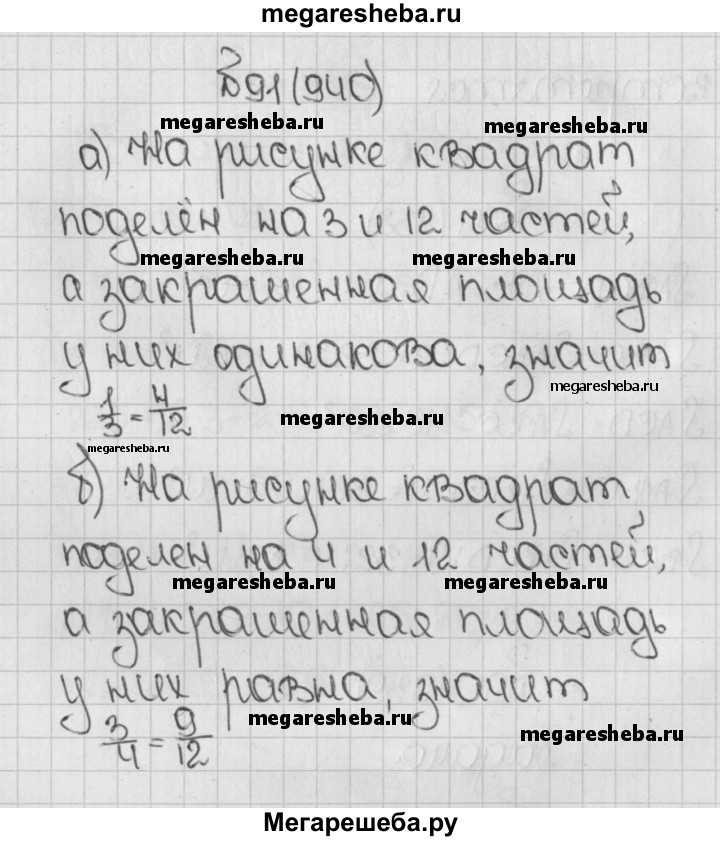 megaresheba.ru
№91(940)
megaresheba.ru megaresheba.ru
а) На рисунке квадрат
поделён на 3 и 12 частей,
megaresheba.ru megaresheba.ru
а закрашенная площадь
у них одинакова, значит
megaresheba.ru
1/3 = 4/12
megaresheba.ru
megaresheba.ru
б) На рисунке квадрат
поделен на 4 и 12 частей,
megaresheba.ru megaresheba.ru
а закрашенная площадь
у них равна, значит
megaresheba.ru
3/4 = 9/12
megaresheba.ru
Мегарешеба.ру